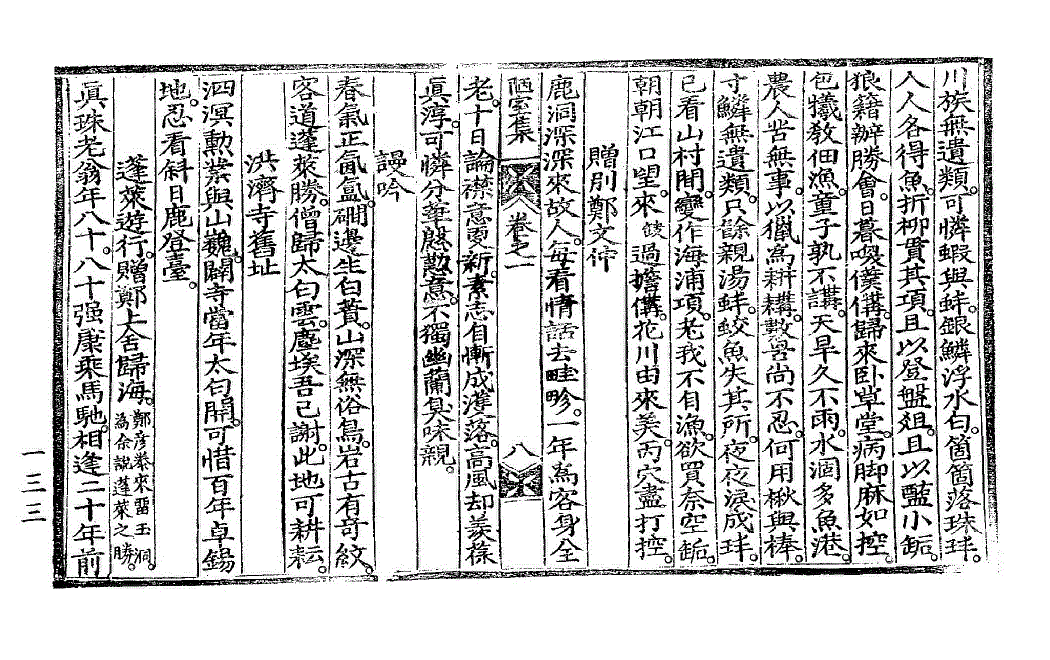 川族無遺類。可憐蝦與蚌。銀鱗浮水白。箇箇落珠玤。
人人各得魚。折柳貫其項。且以登盤俎。且以藍小缿。
狼籍辦勝會。日暮嗅僕傋。歸來臥草堂。病脚麻如控。
包犧敎佃漁。童子孰不講。天旱久不雨。水涸多魚港。
農人苦無事。以獵爲耕耩。數罟尚不忍。何用楸與棒。
寸鱗無遺類。只餘親湯蚌。鮫魚失其所。夜夜淚成玤。
已看山村閙。變作海浦項。老我不自漁。欲買奈空缿。
朝朝江口望。來 餕 過擔傋。花川由來美。丙穴盡打控。
贈別鄭文仲
鹿洞深深來故人。每看情話去畦畛。一年爲客身全
陋室集 卷之一 八
老。十日論襟意更新。素志自慚成濩落。高風却羨葆
眞淳。可憐分華慇懃意。不獨幽蘭臭味親。
謾吟
春氣正氤氳。磵邊生白蕡。山深無俗鳥。岩古有奇紋。
客道蓬萊勝。僧歸太白雲。塵埃吾已謝。此地可耕耘。
洪濟寺舊址
泗溟勳業與山巍。闢寺當年太白開。可惜百年卓錫
地。忍看斜日鹿登臺。
蓬萊遊行。贈鄭上舍歸海。鄭彦泰來留玉洞。爲余說蓬萊之勝。
眞珠老翁年八十。八十强康乘馬馳。相逢二十年前
一三三